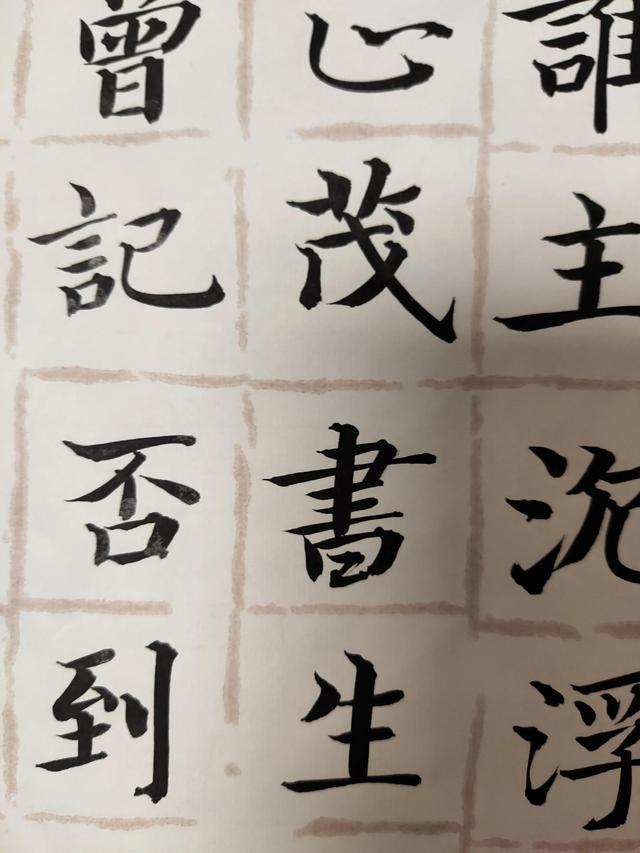 誰主沉浮
正茂書生
曾記否到